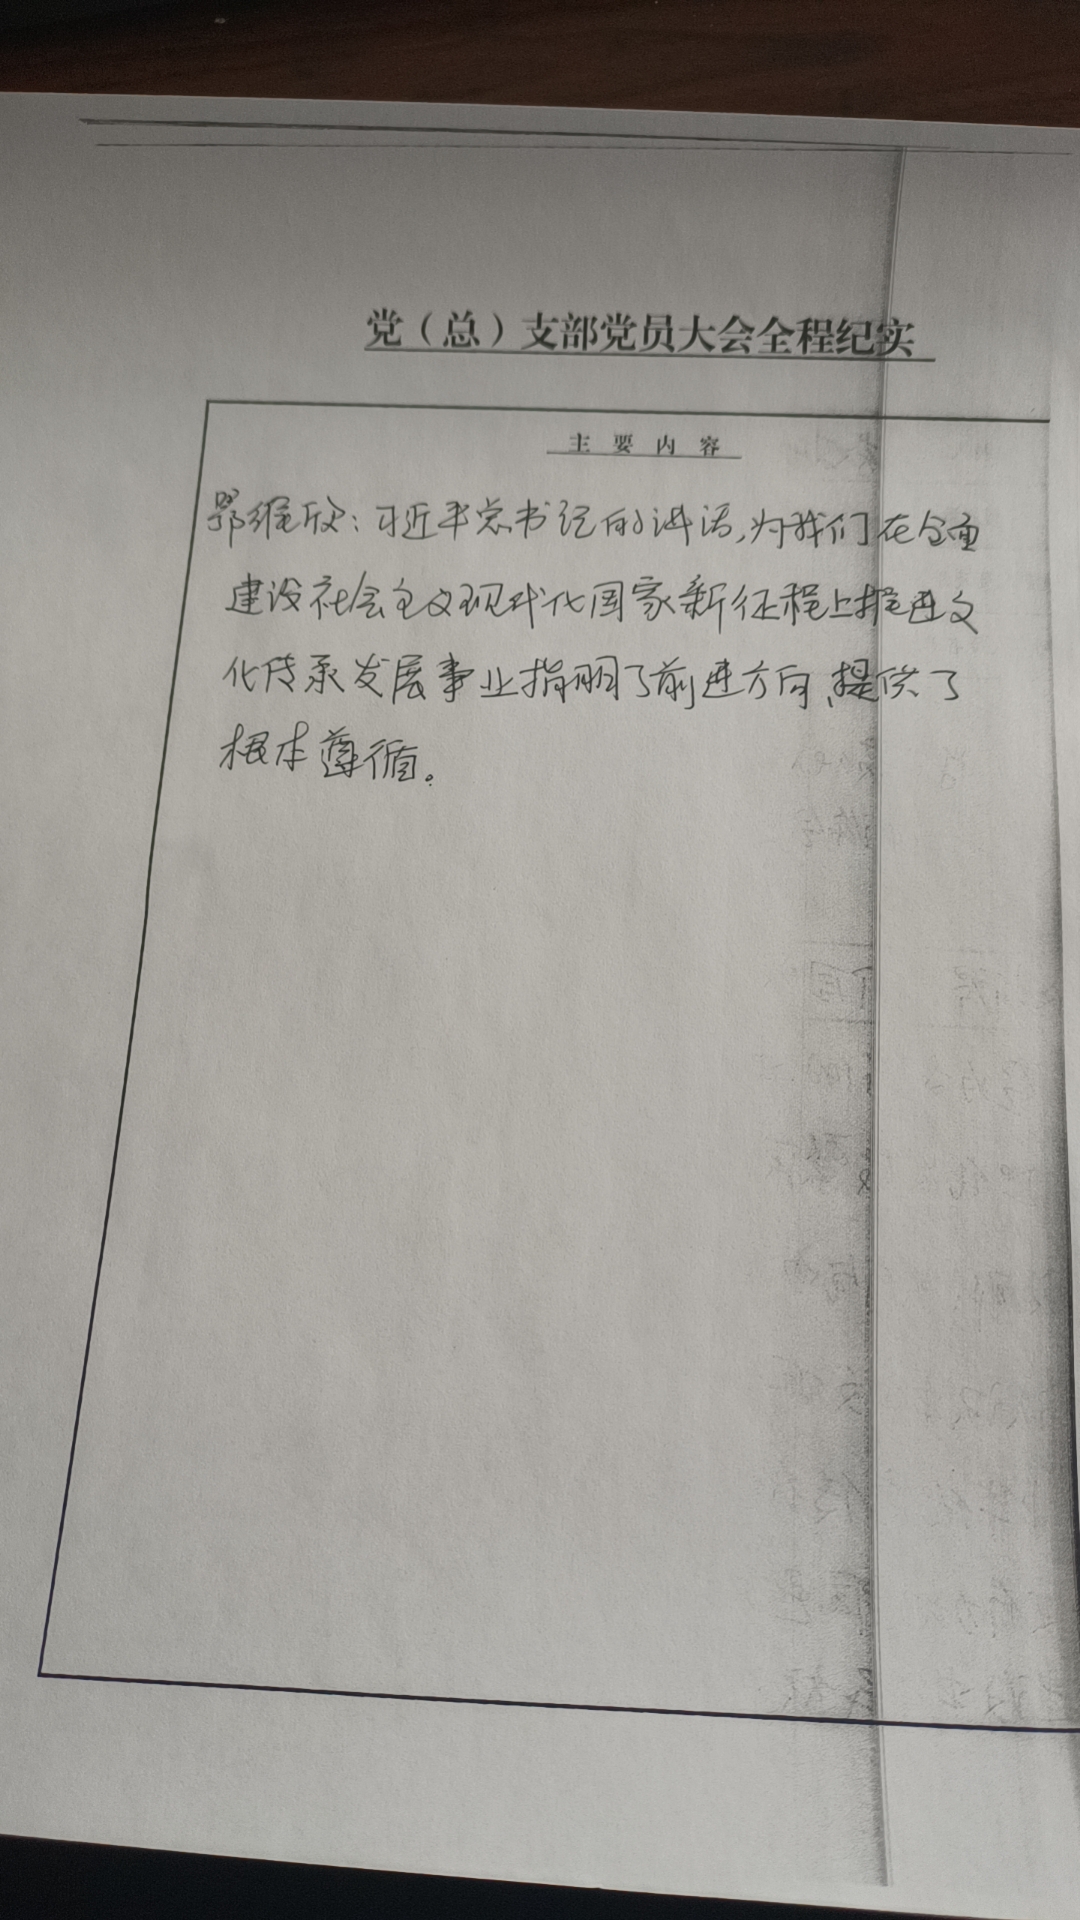 党（总）支部党员大会全程纪实
主要内容
鄂维欣：习近平总书记的讲话，为我们在全面
建设社会主义现代化国家新征程上推进文
化传承发展事业指明了前进方向、提供了
根本遵循。